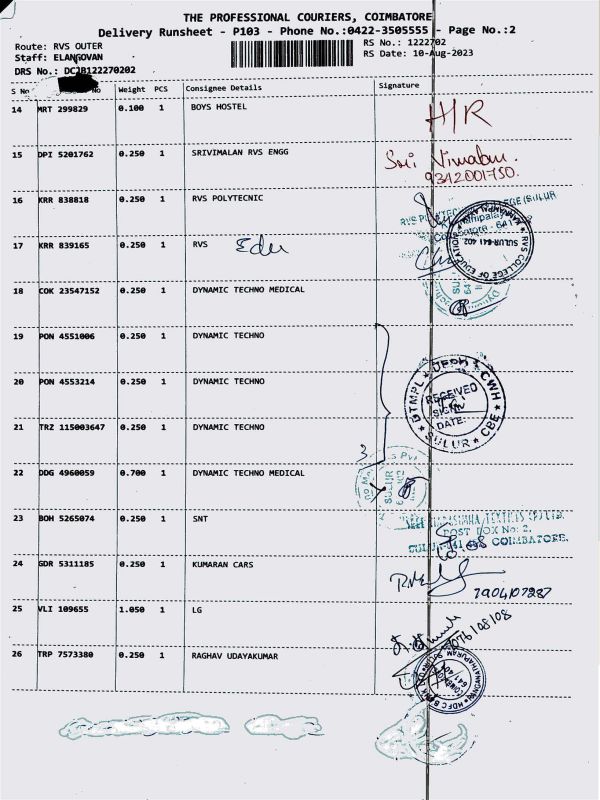 THE PROFESSIONAL COURIERS, COIMBATORE
Delivery Runsheet - P103 - Phone No.:0422-3505555 - Page No.:2
Route: RVS OUTER
RS No.: 1222702
Staff: ELANGOVAN
RS Date: 10-Aug-2023
DRS No.: DCJB122270202
S No No Weight PCS Consignee Details Signature
14 MRT 299829 0.100 1 BOYS HOSTEL H/R
15 DPI 5201762 0.250 1 SRIVIMALAN RVS ENGG Sri Vimalan.
9342001750.
16 KRR 838818 0.250 1 RVS POLYTECNIC
17 KRR 839165 0.250 1 RVS Edu
RVS COLLEGE OF EDUCATION
SULUR-641 402
18 COK 23547152 0.250 1 DYNAMIC TECHNO MEDICAL
19 PON 4551006 0.250 1 DYNAMIC TECHNO
20 PON 4553214 0.250 1 DYNAMIC TECHNO
DTMPL CWH
RECEIVED
SIGN
DATE:
SULUR CBE
21 TRZ 115003647 0.250 1 DYNAMIC TECHNO
22 DDG 4960059 0.700 1 DYNAMIC TECHNO MEDICAL
3
SULUR
23 BOH 5265074 0.250 1 SNT
POST BOX No: 2.
COIMBATORE.
24 GDR 5311185 0.250 1 KUMARAN CARS
7904107287
25 VLI 109655 1.050 1 LG
26 TRP 7573380 0.250 1 RAGHAV UDAYAKUMAR
HDFC BANK